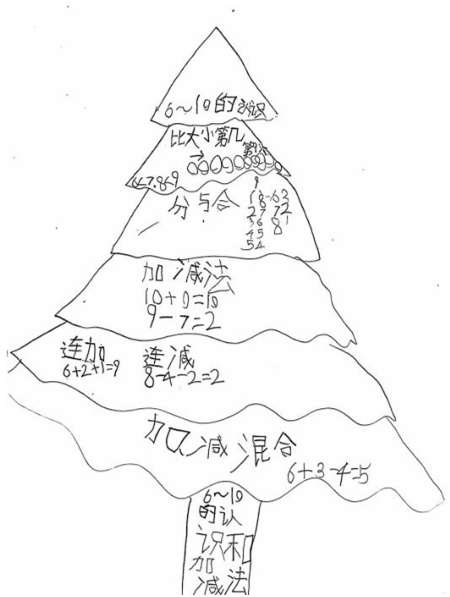 6～10的认识
比大小第几
→
6<7,8<9
分与合
9
1 8 6 3
2 7 7 2
3 6 8 1
4 5
5 4
加减法
10+0=10
9-7=2
连加 连减
6+2+1=9 8-4-2=2
加减混合
6+3-4=5
6～10
的认
识和
加
减法